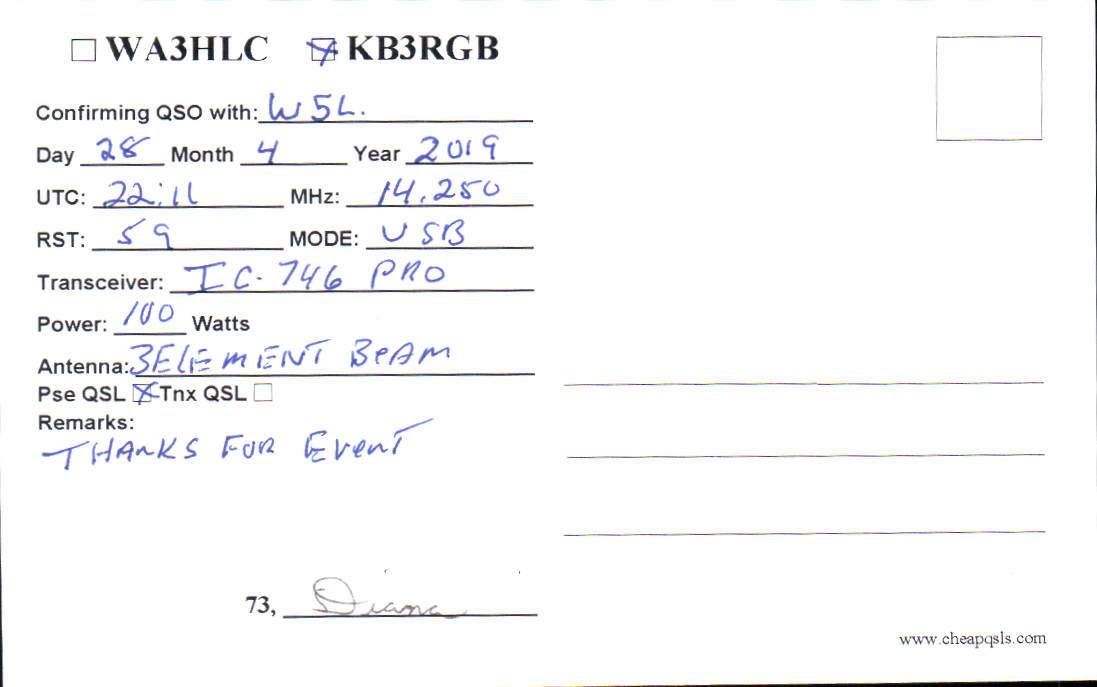 ☐ WA3HLC ☒ KB3RGB
Confirming QSO with: W5L.
Day 28 Month 4 Year 2019
UTC: 22:11 MHz: 14.250
RST: 59 MODE: USB
Transceiver: IC-746 PRO
Power: 100 Watts
Antenna: 3 ELEMENT BEAM
Pse QSL ☒ Tnx QSL ☐
Remarks:
THANKS FOR EVENT
73, Diana
www.cheapqsls.com